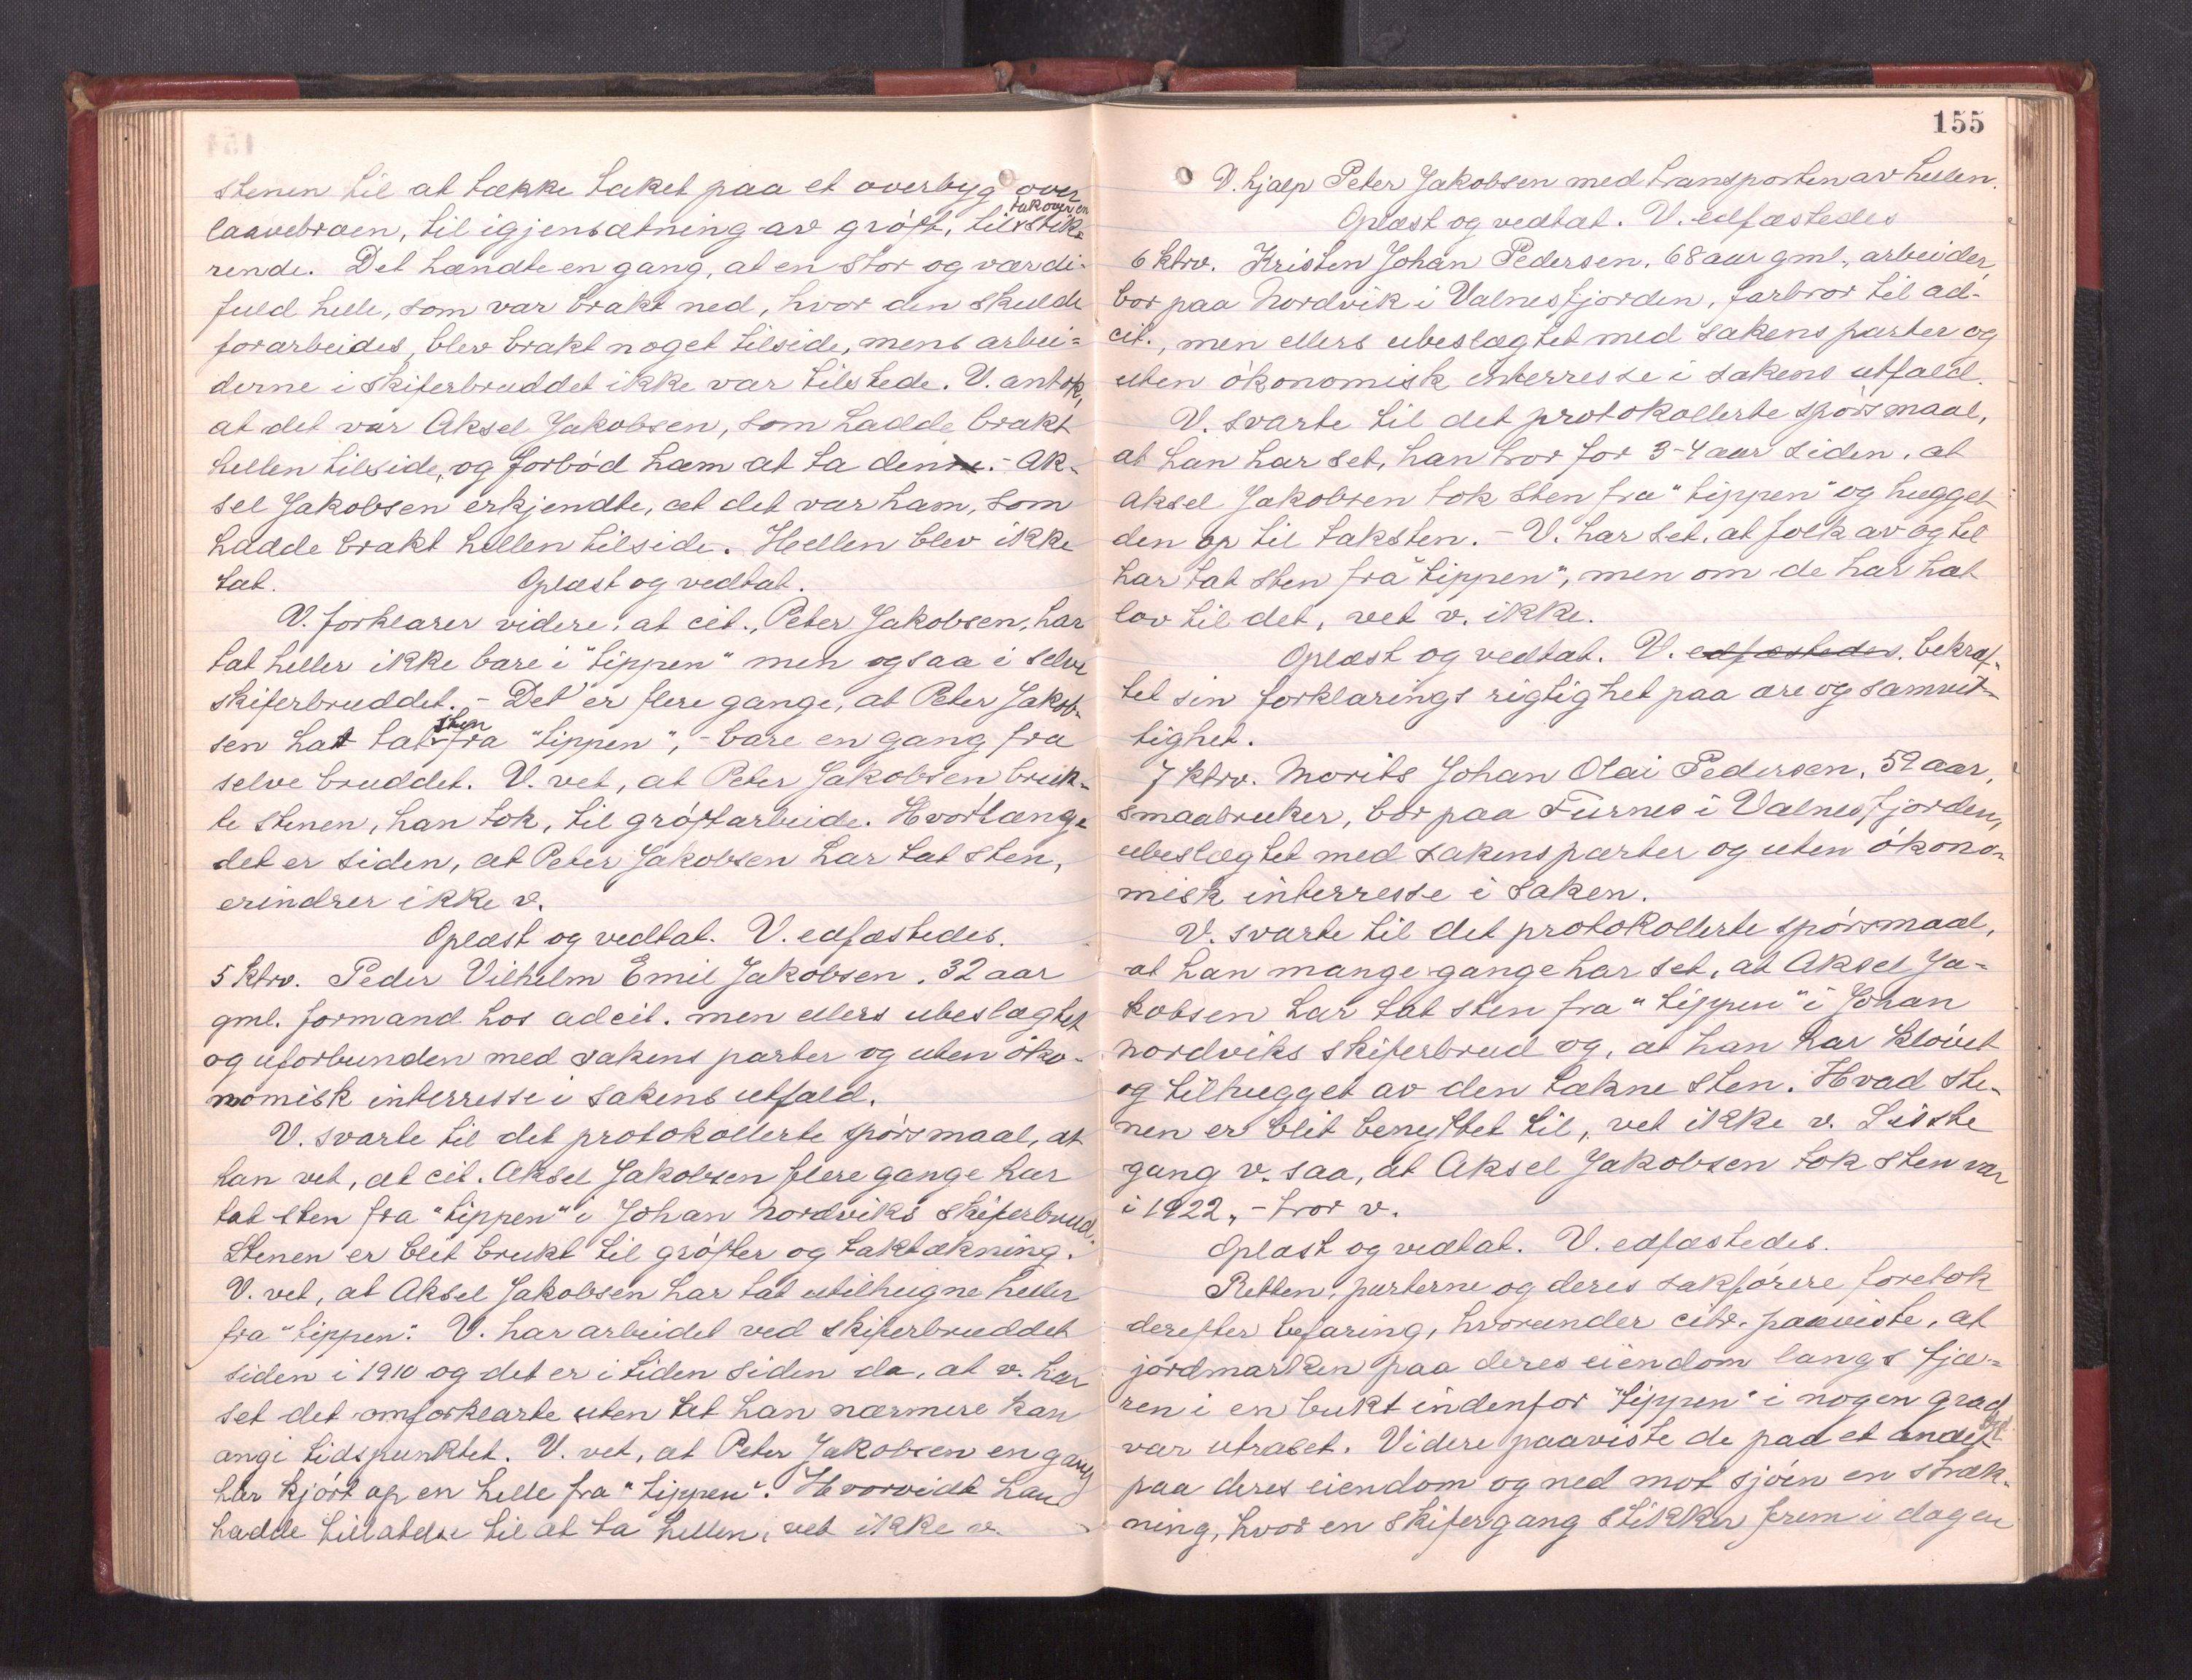 stenen til at tække taket paa et overbyg over
laavebroen, til igjensætning av grøft, til tak over en stik-
rende. Det hændte en gang, at en stor og værdi-
fuld helle, som var brakt ned, hvor den skulde
forarbeides, blev brakt noget tilside, mens arbei-
derne i skiferbruddet ikke var tilstede. V. antok,
at det var Aksel Jakobsen, som hadde brakt
hellen tilside, og forbød ham at ta den. - Ak-
sel Jakobsen erkjendte, at det var ham, som
hadde brakt hellen tilside. Hellen blev ikke
tat. Oplæst og vedtat.
V. forklarer videre, at cit., Peter Jakobsen, har
tat heller ikke bare i "tippen" men ogsaa i selve
skiferbruddet. - Det er flere gange, at Peter Jakob-
sen hat tat sten fra "tippen", - bare en gang fra
selve bruddet. V. vet, at Peter Jakobsen bruk-
te stenen, han tok, til grøftarbeide. Hvorlænge
det er siden, at Peter Jakobsen har tat sten,
erindrer ikke v.
Oplæst og vedtat. V. edfæstedes.
5 ktrv. Peder Vilhelm Emil Jakobsen. 32 aar
gml. formand hos adcit. men ellers ubeslægtet
og uforbunden med sakens parter og uten øko-
nomisk interresse i sakens utfald.
V. svarte til det protokollerte spørsmaal, at
han vet, at cit. Aksel Jakobsen flere gange har
tat sten fra "tippen" i Johan Nordviks skiferbrud.
Stenen er blit brukt til grøfter og taktækning.
V. vet, at Aksel Jakobsen har tat utilhugne heller
fra "tippen". V. har arbeidet ved skiferbruddet
siden i 1910 og det er i tiden siden da, at v. har
set det omforklarte uten at han nærmere kan
angi tidspunktet. V. vet, at Peter Jakobsen en gang
har kjørt op en helle fra "tippen". Hvorvidt han
hadde tillatelse til at ta hellen, vet ikke v.
155
V. hjalp Peter Jakobsen med transporten av hellen.
Oplæst og vedtat. V. edfæstedes
6 ktrv. Kristen Johan Pedersen, 68 aar gml., arbeider,
bor paa Nordvik i Valnesfjorden, farbror til ad-
cit., men ellers ubeslægtet med sakens parter og
uten økonomisk interresse i sakens utfald.
V. svarte til det protokollerte spørsmaal,
at han har set, han tror for 3-4 aar siden, at
Aksel Jakobsen tok sten fra "tippen" og hugget
den op til taksten. - V. har set, at folk av og til
har tat sten fra "tippen", men om de har hat
lov til det, vet v. ikke.
Oplæst og vedtat. V. edfæstedes. bekræf-
tet sin forklarings rigtighet paa ære og samvit-
tighet.
7 ktrv. Morits Johan Olai Pedersen, 52 aar,
smaabruker, bor paa Furnes i Valnesfjorden,
ubeslægtet med sakens parter og uten økono-
misk interresse i saken.
V. svarte til det protokollerte spørsmaal,
at han mange gange har set, at Aksel Ja-
kobsen har tat sten fra "tippen" i Johan
Nordviks skiferbrud og, at han har kløvet
og tilhugget av den takne sten. Hvad ste-
nen er blit benyttet til, vet ikke v. Sidste
gang v. saa, at Aksel Jakobsen tok sten var
i 1922, - tror v.
Oplæst og vedtat. V. edfæstedes.
Retten, parterne og deres sakførere foretok
derefter befaring, hvorunder citr. paaviste, at
jordmarken paa deres eiendom langs fjæ-
ren i en bukt indenfor "tippen" i nogen grad
var utraset. Videre paaviste de paa et andet sted
paa deres eiendom og ned mot sjøen en stræk-
ning, hvor en skifergang stikker frem i dagen